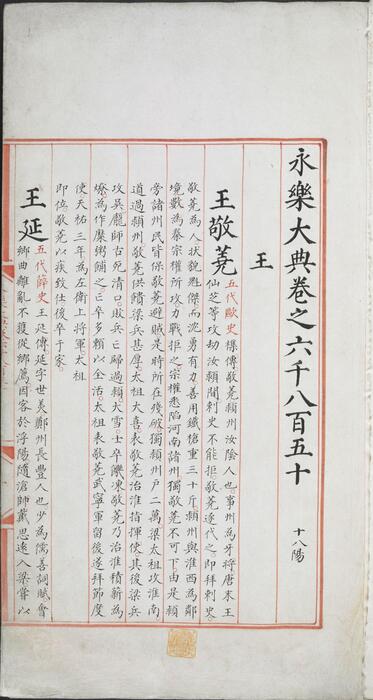 永樂大典卷之六千八百五十 十八陽
王
王敬蕘 五代歐史雜傳敬蕘潁州汝陰人也事州為牙將唐末王
仙芝等攻劫汝潁間刺史不能拒敬蕘遂代之即拜刺史
敬蕘為人狀貌魁傑而沈勇有力善用鐵槍重三十斤潁州與淮西為鄰
境數為秦宗權所攻力戰拒之宗權悉陷河南諸州獨敬蕘不可下由是潁
旁諸州民皆保敬蕘避賊是時所在殘破獨潁州戶二萬梁太祖攻淮南
道過潁州敬蕘供饋梁兵甚厚太祖大喜表敬蕘沿淮指揮使其後梁兵
攻吳龐師古死清口敗兵亡歸過潁大雪士卒饑凍敬蕘乃沿淮積薪為
燎為作糜粥餔之亡卒多賴以全活太祖表敬蕘武寧軍留後遂拜節度
使天祐三年為左衛上將軍太祖
即位敬蕘以疾致仕後卒于家
王延 五代薛史王延傳延字世美鄭州長豐人也少為儒善詞賦會
鄉曲離亂不獲從鄉薦因客於浮陽隨滄帥戴思遠入梁嘗以